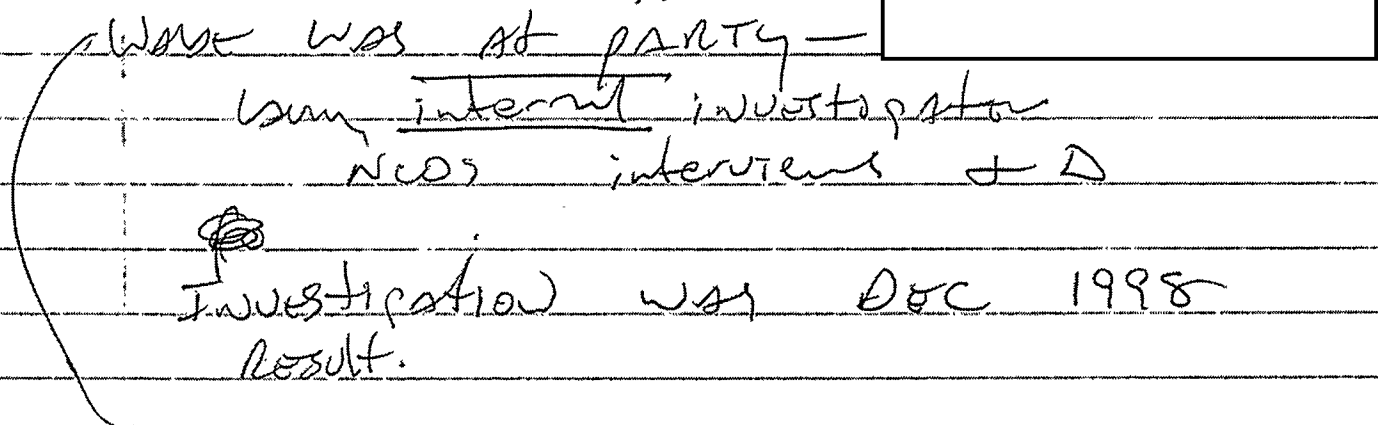 was at PARTY —
internal investigation
NCOS interviews + D
Investigation was DEC 1998
Result.